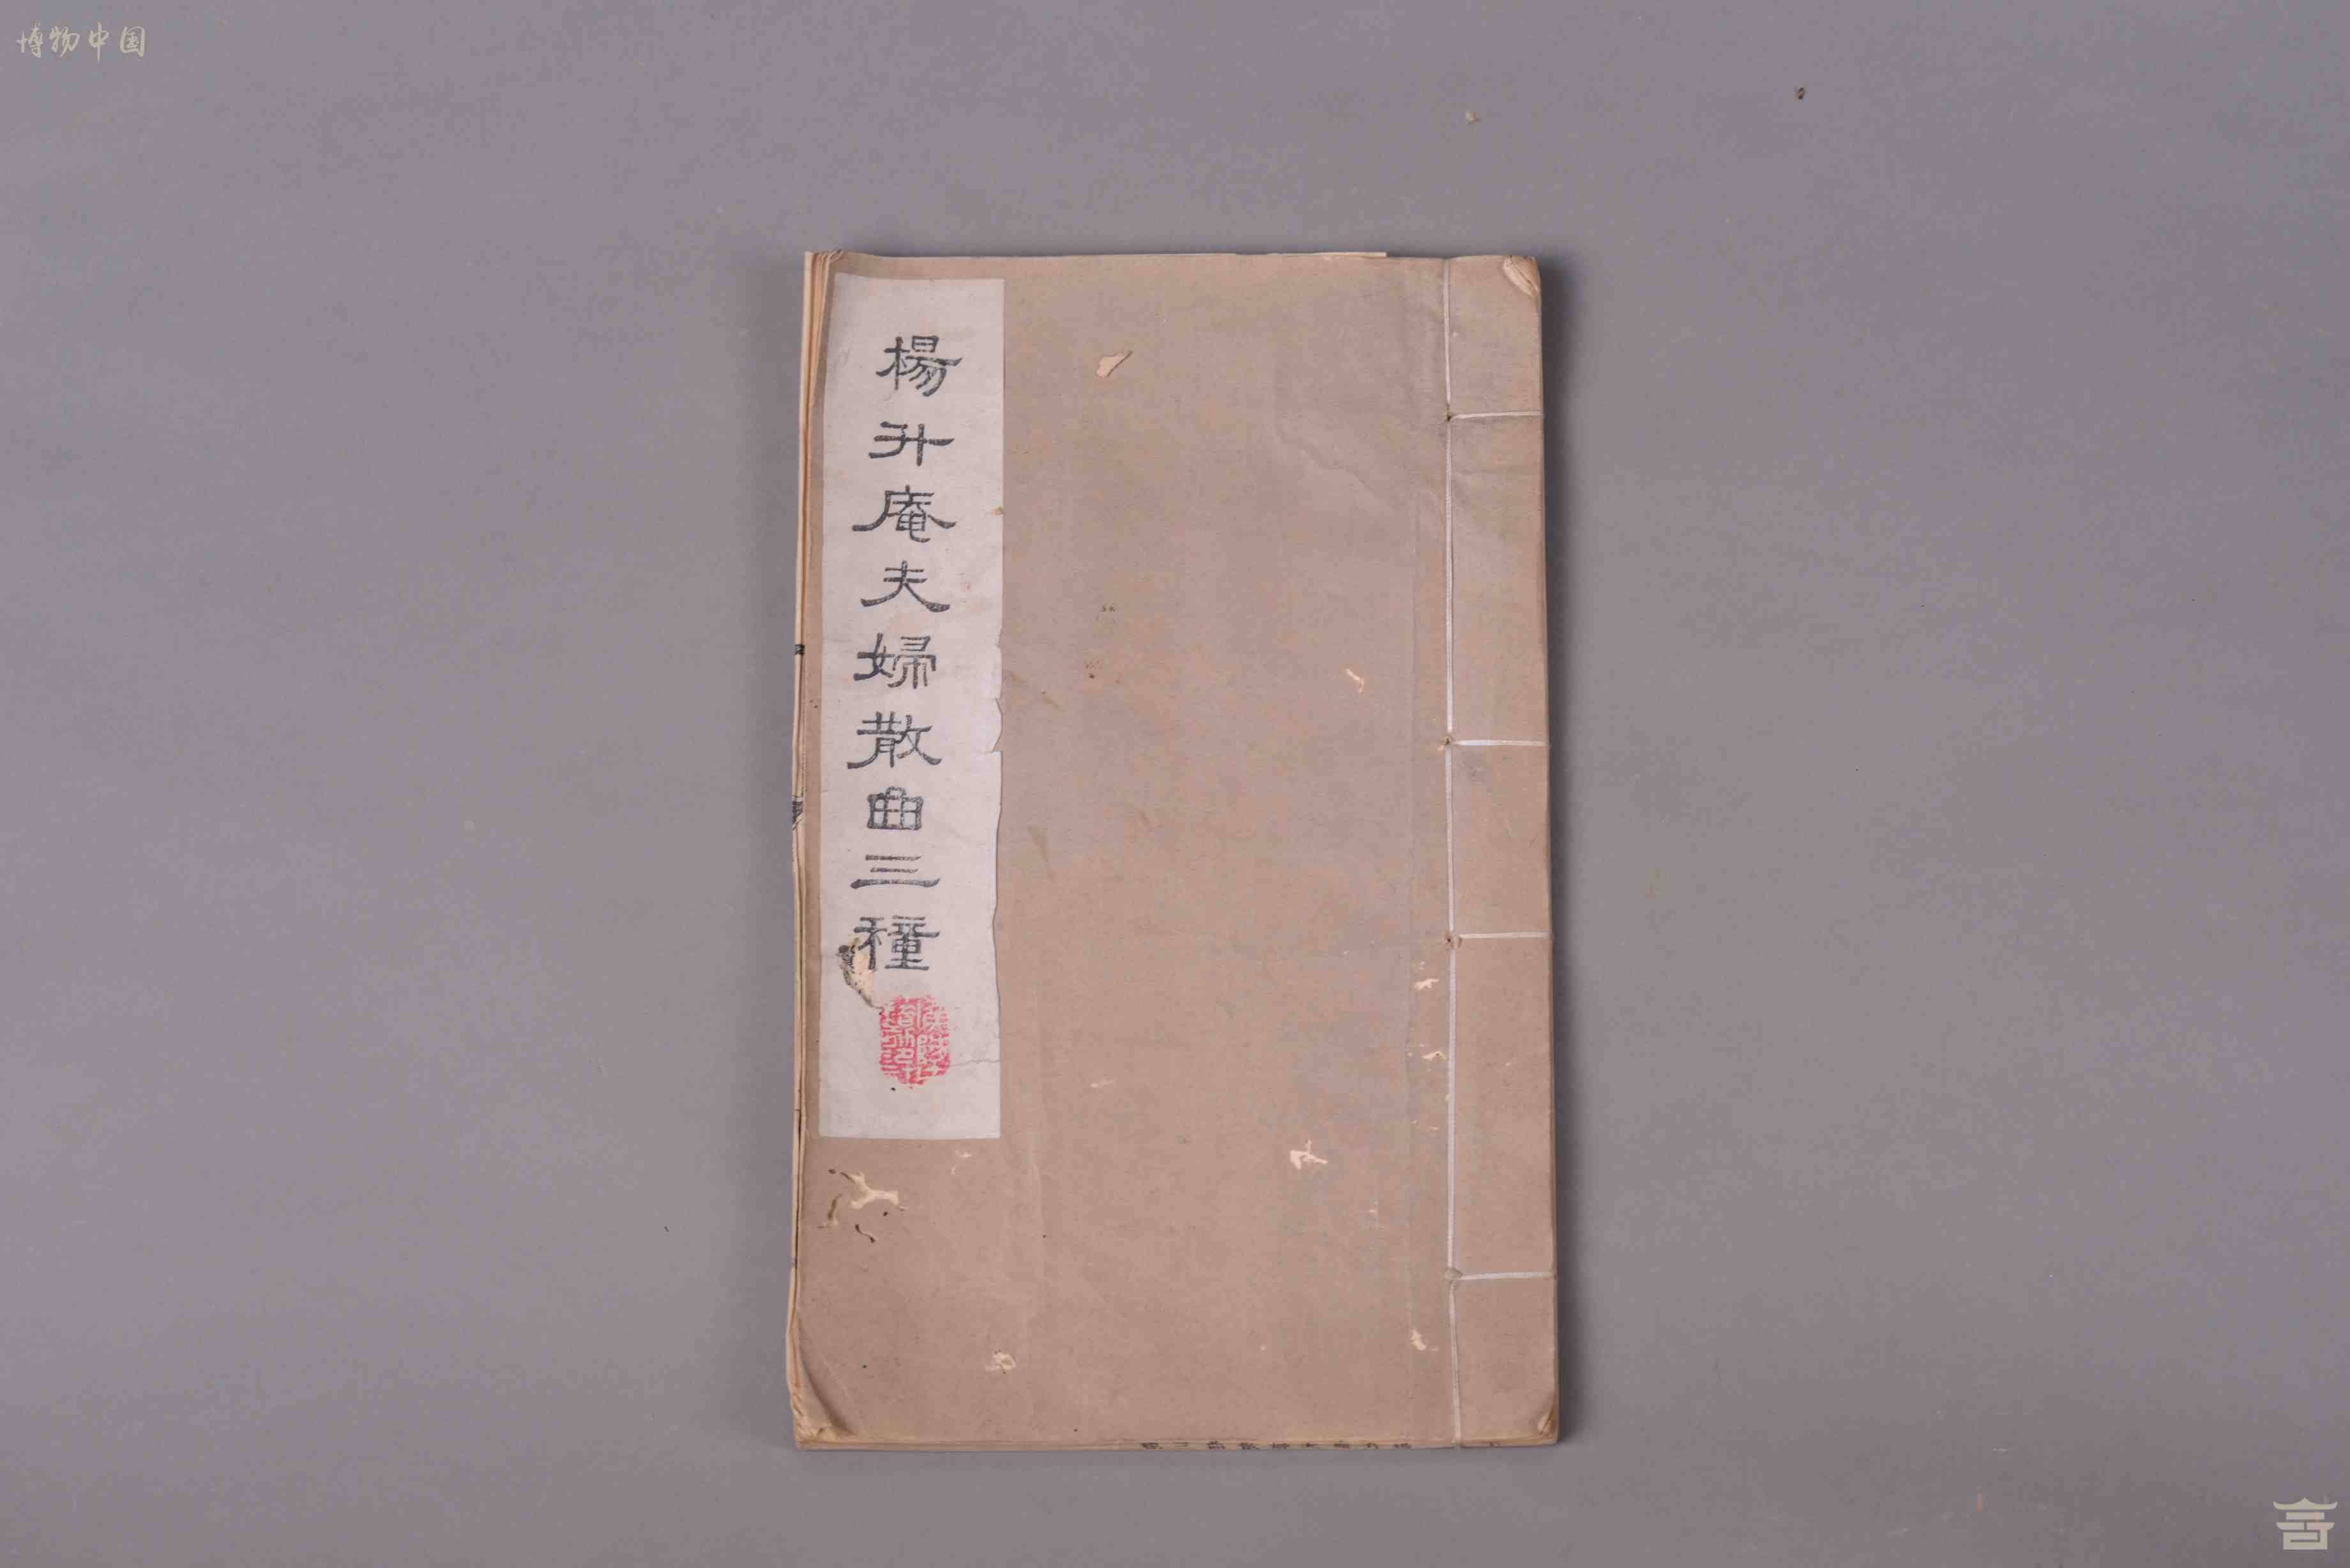 博物中国
楊升庵夫婦散曲三種